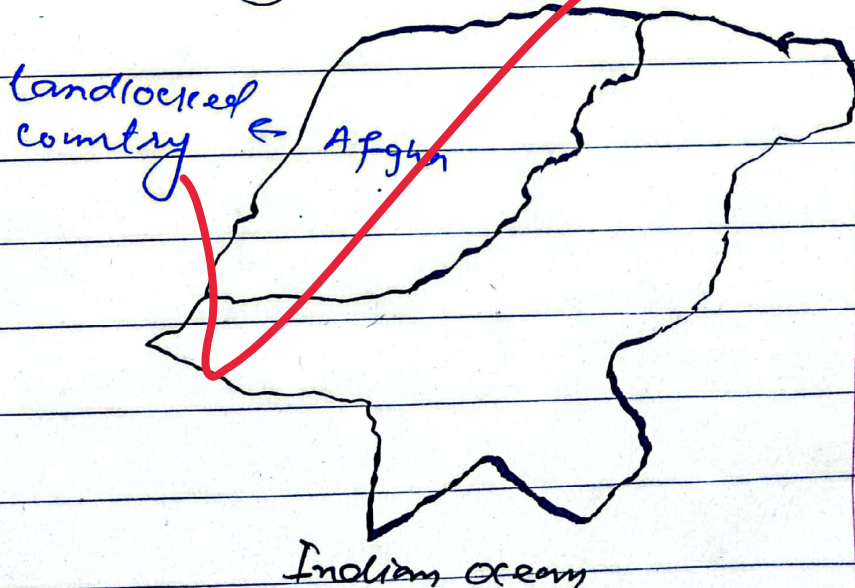 Landlocked
country ← Afghn
Indian ocean